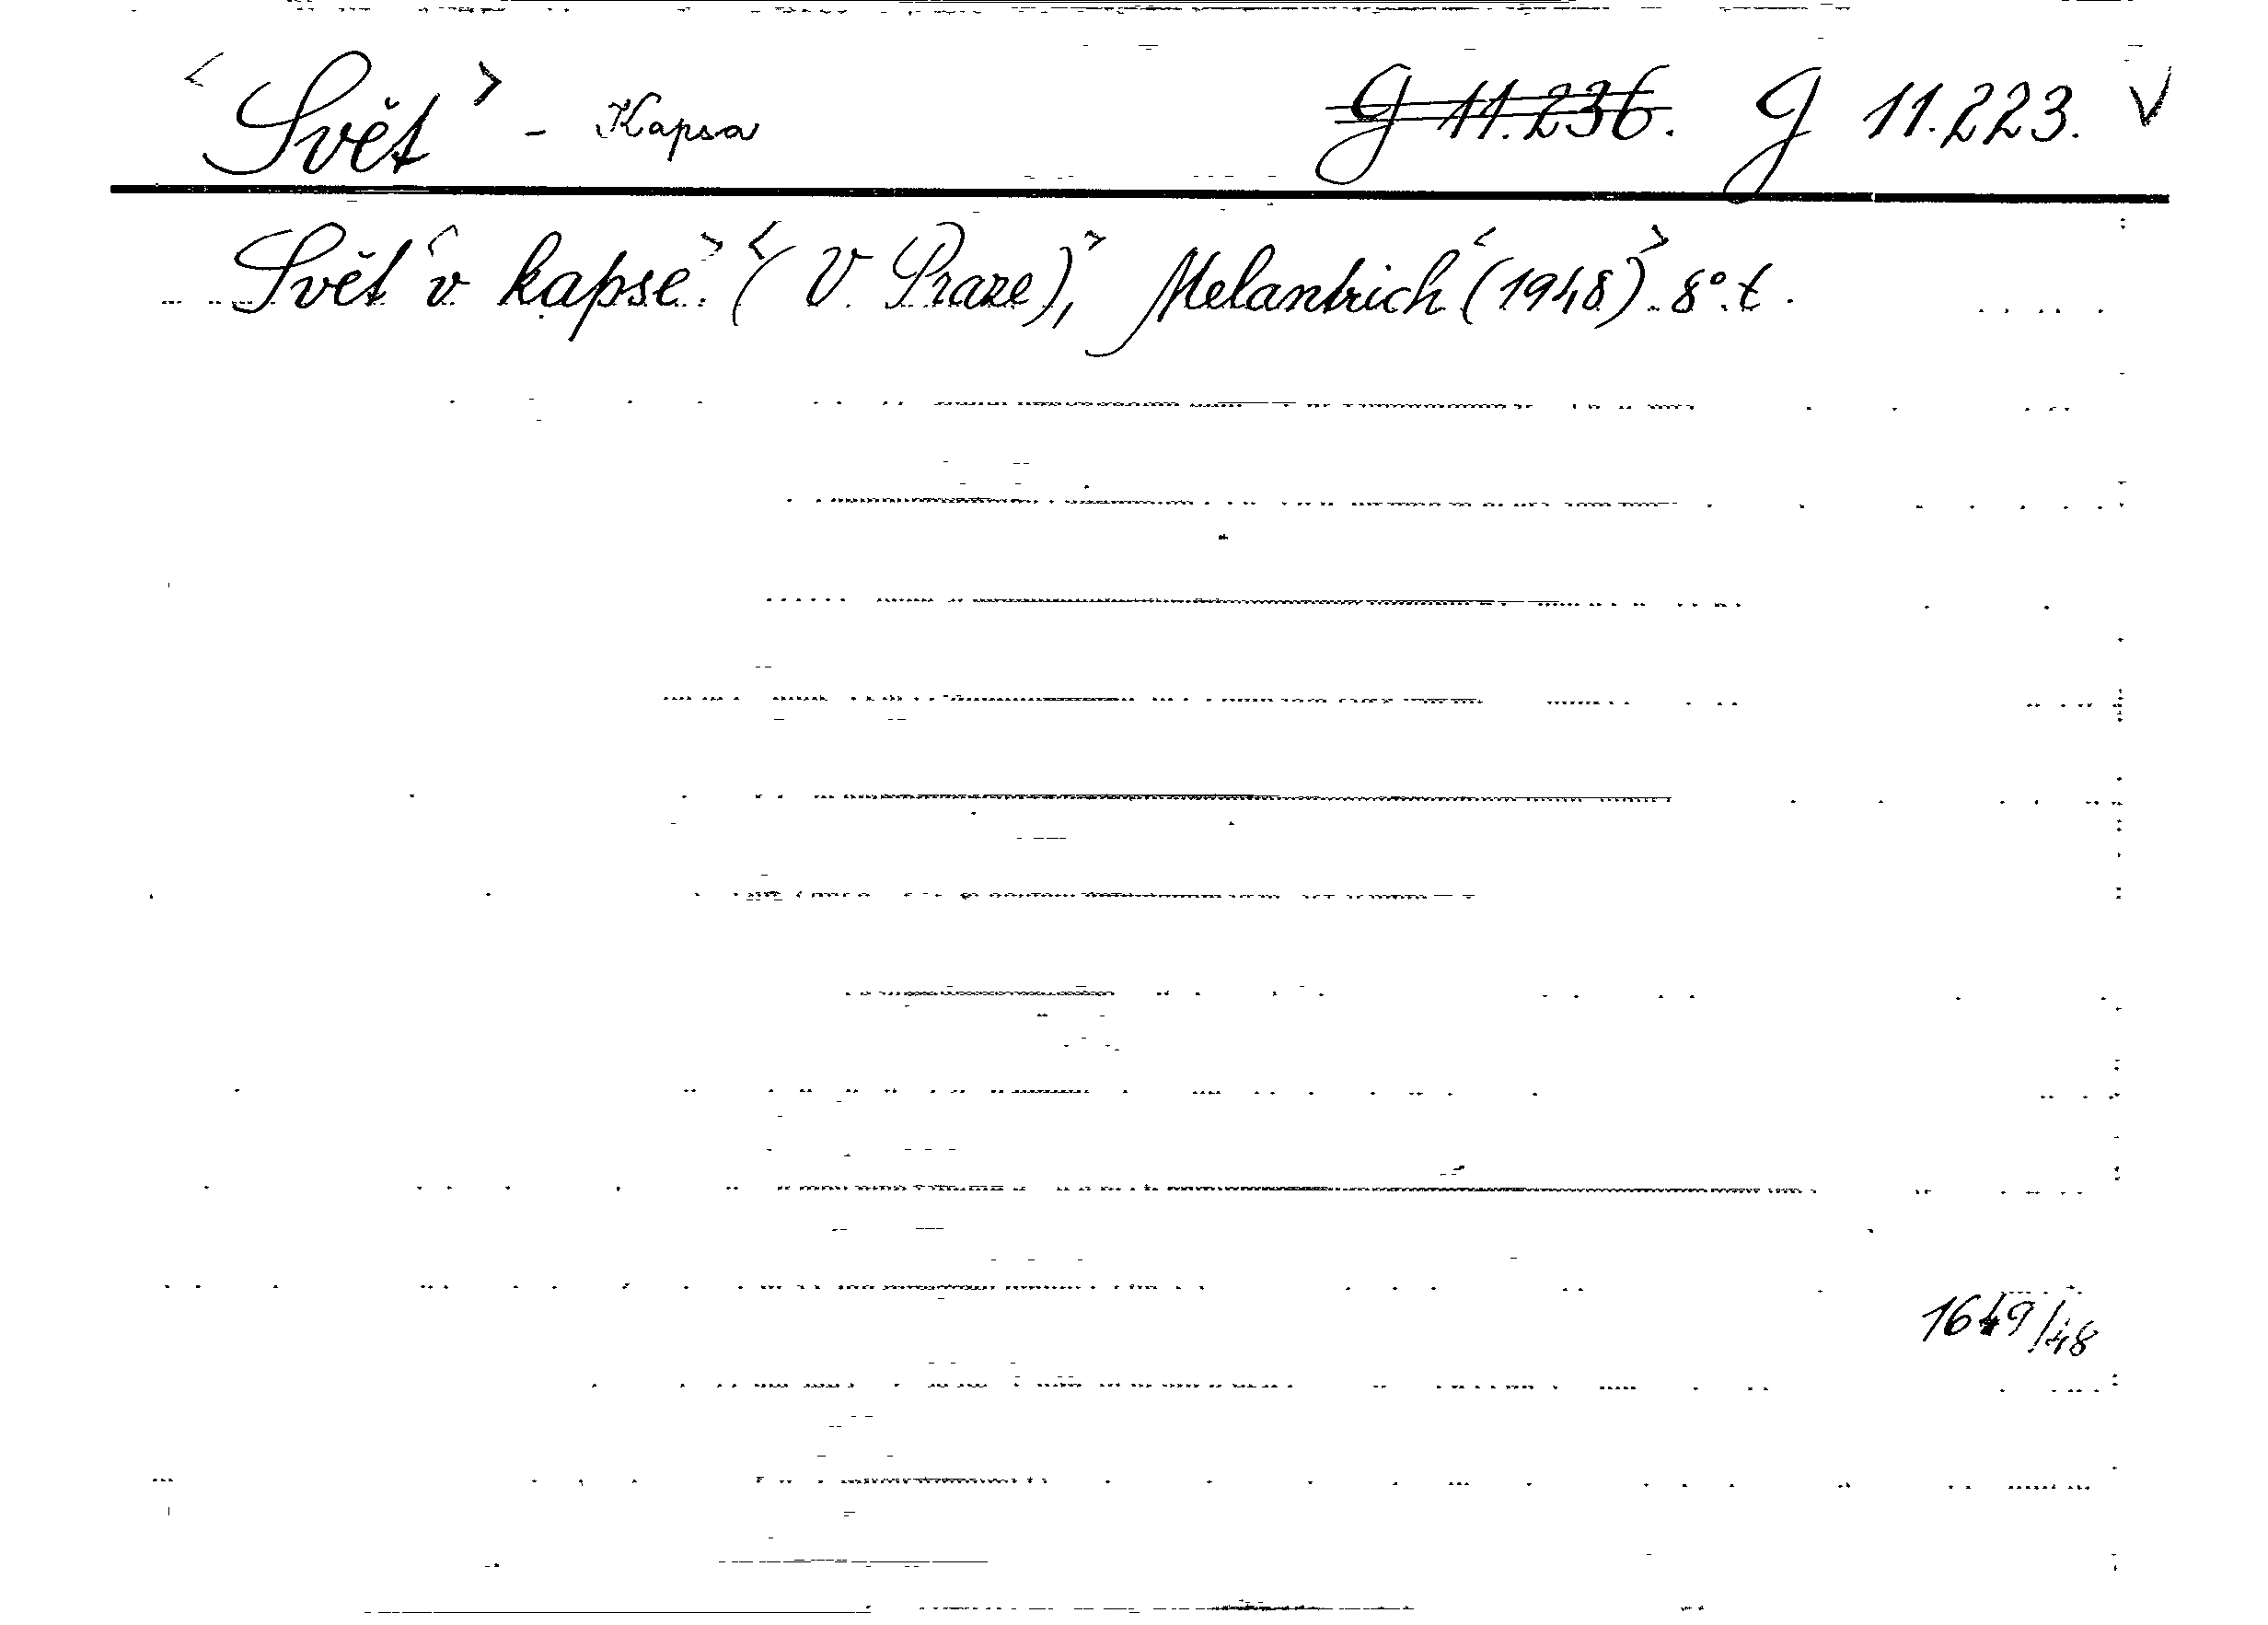 <Svět> - Kapsa G 11.236. G 11.223. V
Svět <v kapse.> <(V Praze),> Melantrich <(1948)>. 8°. t.
1649/48